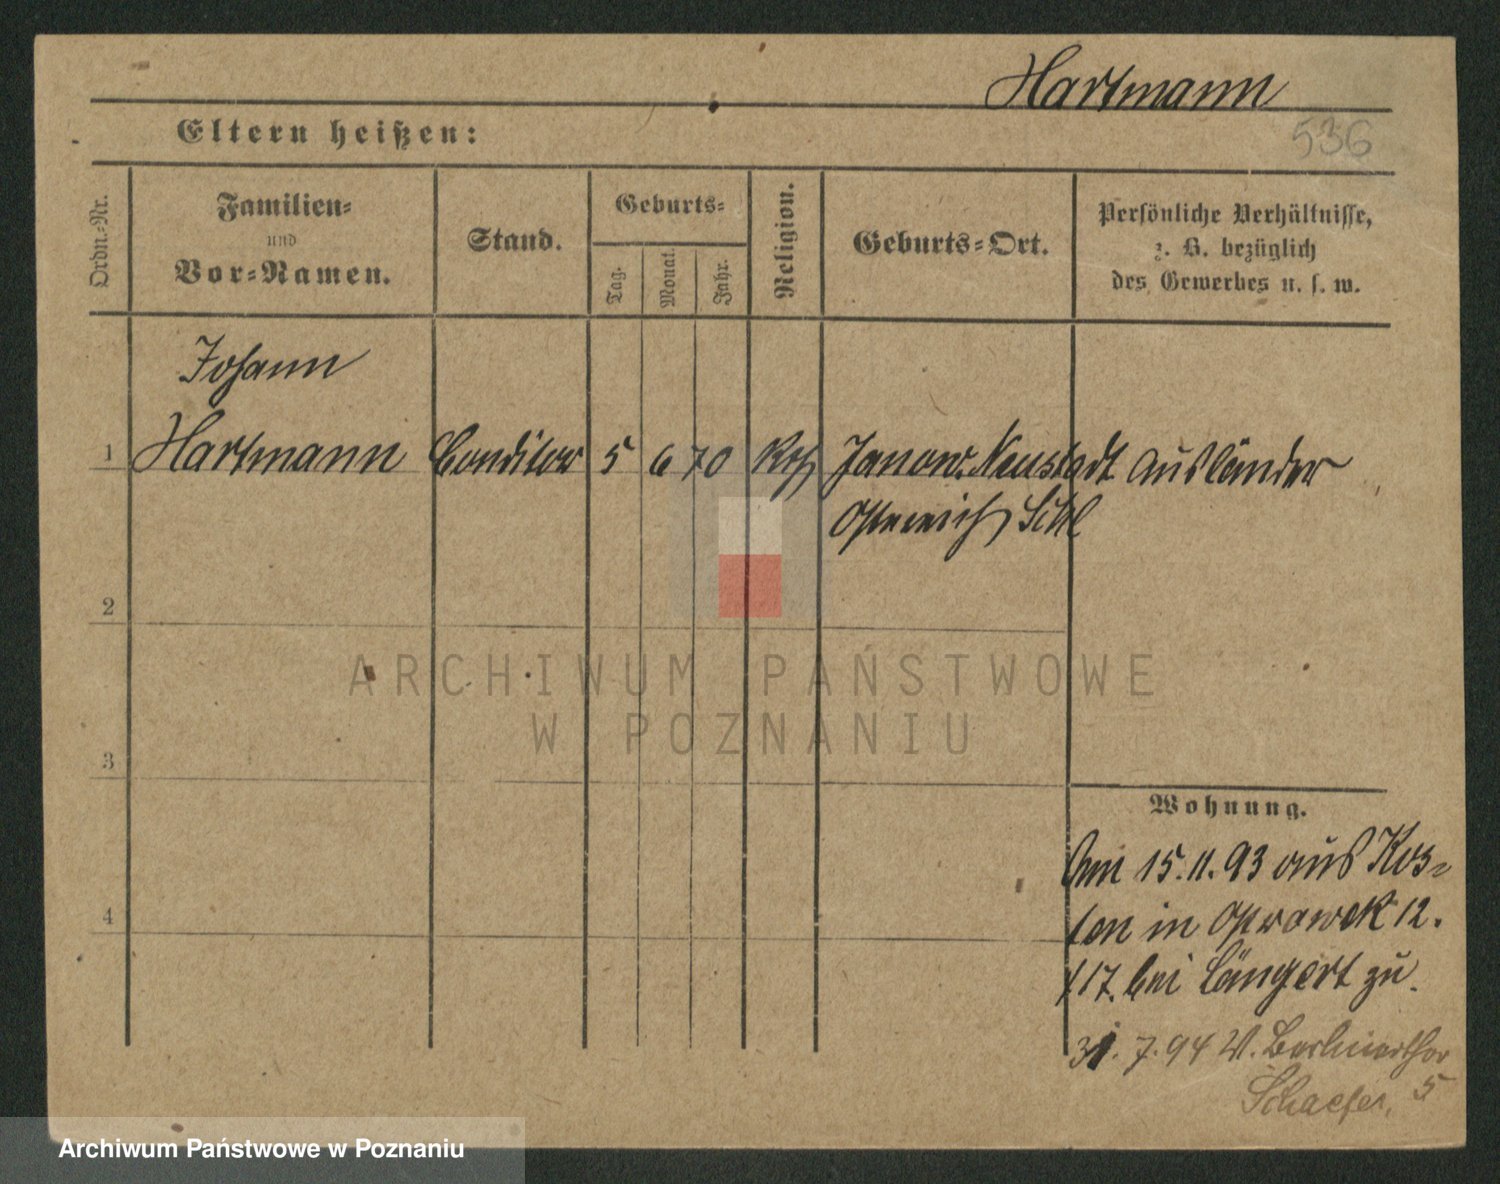 Hartmann
Eltern heißen:
536
Ordn.-Nr.
Familien-
und
Vor-Namen.
Stand.
Geburts-
Tag.
Monat.
Jahr.
Religion.
Geburts-Ort.
Persönliche Verhältnisse,
z. B. bezüglich
des Gewerbes u. s. w.
Johann
1 Hartmann Conditor 5 6 70 Kth Janow. Neustadt Ausländer
Ostreich Schl
2
ARCHIWUM PAŃSTWOWE
W POZNANIU
3
Wohnung.
Am 15.11.93 aus Kos-
ten in Ostrowek 12.
4
/17. bei Längert zu.
31.7.94 W. Berlinerthor
Schaefer. 5
Archiwum Państwowe w Poznaniu